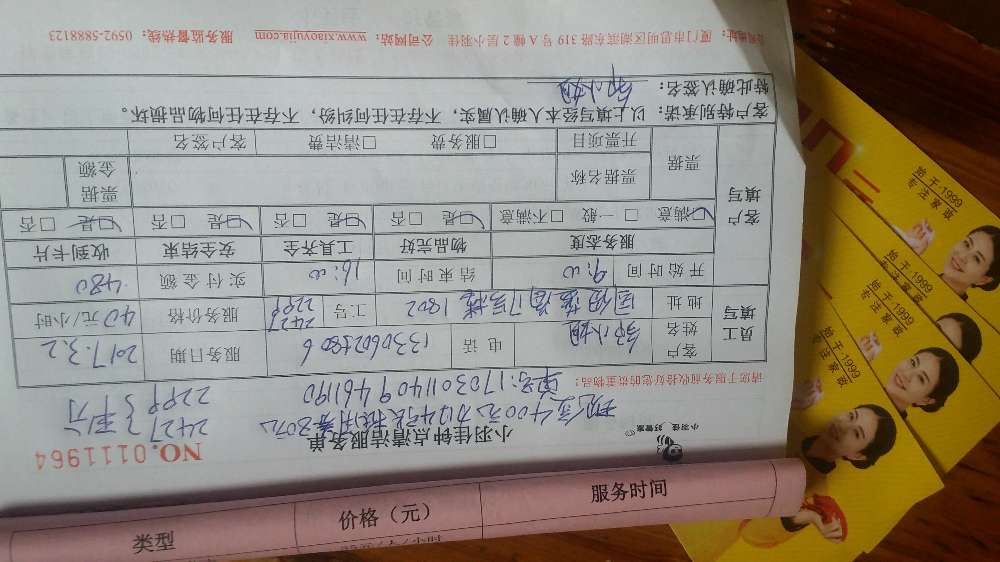 小羽佳 好管家
小羽佳钟点清洁服务单
NO.0111964
现金400元
2427
2299
单号:1703011409461190
请您于服务前收拾好您的贵重物品:
员工填写
客户姓名
电话
服务日期
2017.3.2
地址
1802
工号
2427
2299
服务价格
40元/小时
开始时间
9:00
结束时间
16:00
实付金额
480
客户填写
服务态度
物品完好
工具齐全
安全结束
收到卡片
☑满意 □一般 □不满意
☑是 □否
☑是 □否
☑是 □否
☑是 □否
票据
票据名称
票据金额
开票项目
□服务费 □清洁费
客户签名
客户特别承诺:以上填写经本人确认属实,不存在任何纠纷,不存在任何物品损坏。
特此确认签名:
公司地址:厦门市思明区湖滨东路 319 号 A 幢 2 层小羽佳 公司网站:www.xiaoyujia.com 服务监督热线:0592-5888123
类型
价格(元)
服务时间
始于·1999
专注家政
始于·1999
专注家政
始于·1999
专注家政
始于·1999
专注家政